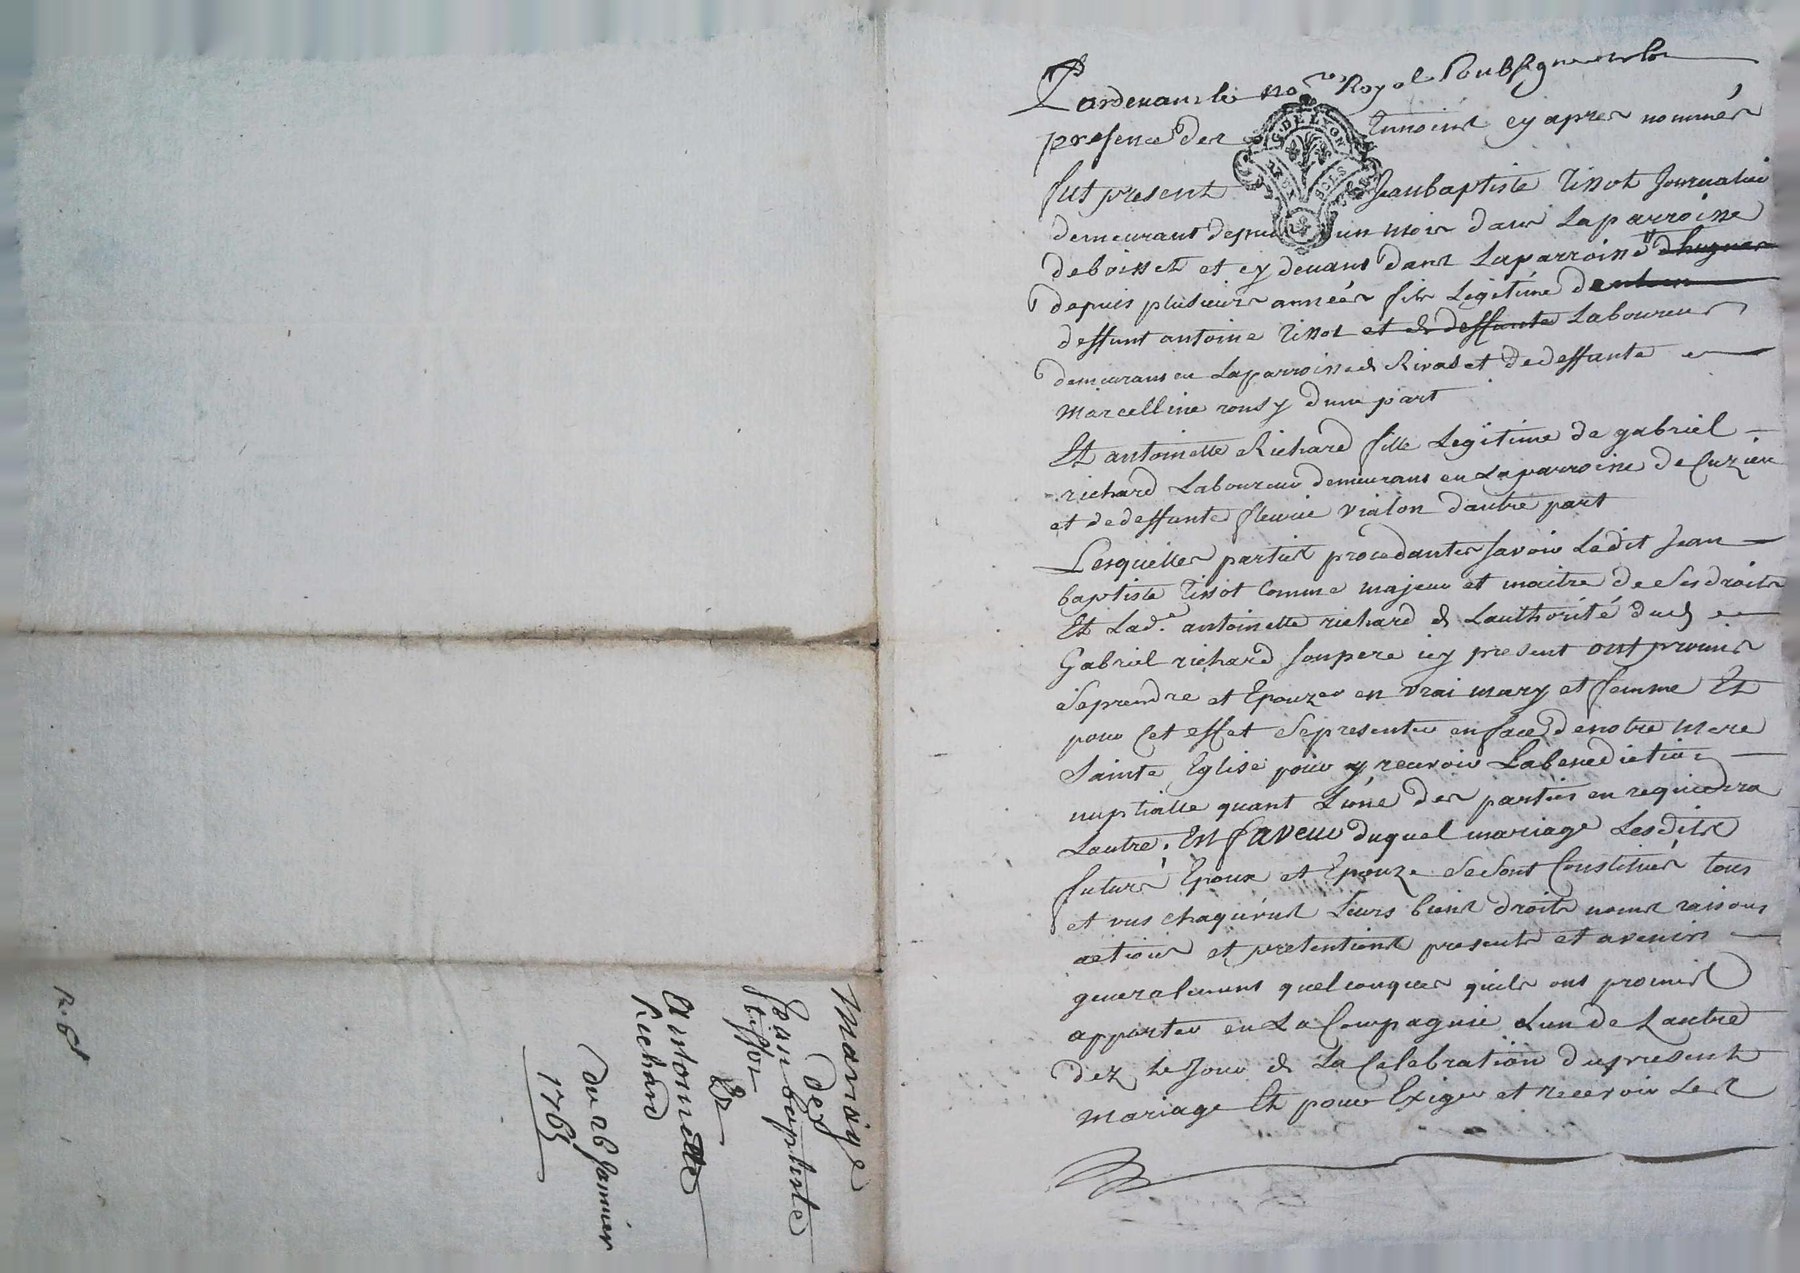 Mariage
des
Jean baptiste
tissot
Et
Antoinette
Richard
du 26 Janvier
1765
Pardevant le no.re Royal Soubsigné en la
presence des Temoins cy apres nommés
G. DE LYON
SOLS
fut present Jean baptiste Tissot Journalier
demeurant depuis un mois dans la parroisse
de boisset et cy devant dans la parroisse
depuis plusieurs années fils Legitime
deffunt antoine Tissot et de deffunte Laboureur
demeurant en la parroisse de Rivas et de deffunte
Marcelline rousy d'une part
Et antoinette Richard fille Legitime de gabriel
richard Laboureur demeurans en la parroisse de Cuzieu
et de deffunte fleurie vialon d'autre part
Lesquelles parties procedantes savoir Ledit Jean
baptiste Tissot Comme majeur et maitre de ses droits
Et Lad.e antoinette richard de Lauthorité dud
Gabriel richard son pere icy present ont promis
se prendre et Epouzer en vrai mary et femme Et
pour Cet effet se presenter en face de notre mere
Sainte Eglise pour y recevoir La benediction
nuptialle quant L'une des parties en requierra
Lautre. En faveur duquel mariage Lesdits
futurs Epoux et Epouze se sont Constitués tous
et uns chaquuns Leurs biens droits noms raisons
actions et pretentions presents et avenirs
generalement quelconques quils ont promis
apporter en La Compagnie Lun de Lautre
dez le Jour de La Celebration du present
mariage Et pour Exiger et recevoir Les